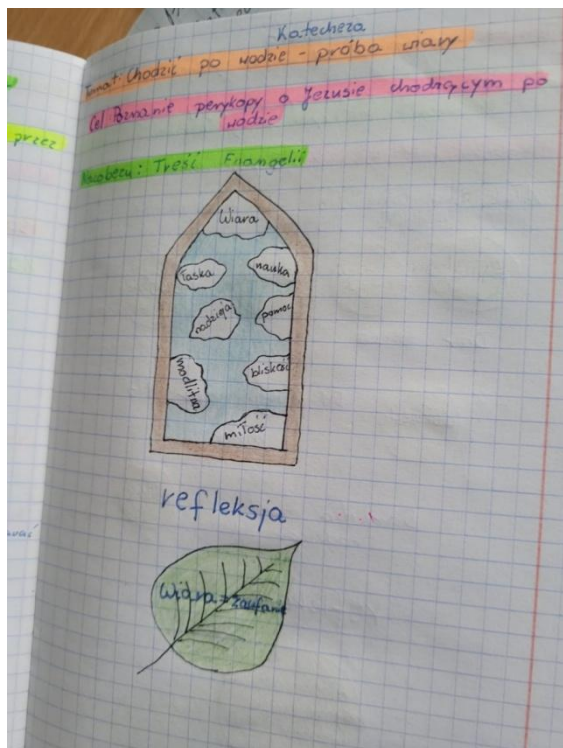 Katecheza
Temat: Chodzić po wodzie - próba wiary
Cel Poznanie perykopy o Jezusie chodzącym po
wodzie
przez
Nacobezu: Treść Ewangelii
Wiara
łaska
nauka
nadzieja
pomoc
modlitwa
bliskość
miłość
refleksja
Wiara = zaufanie